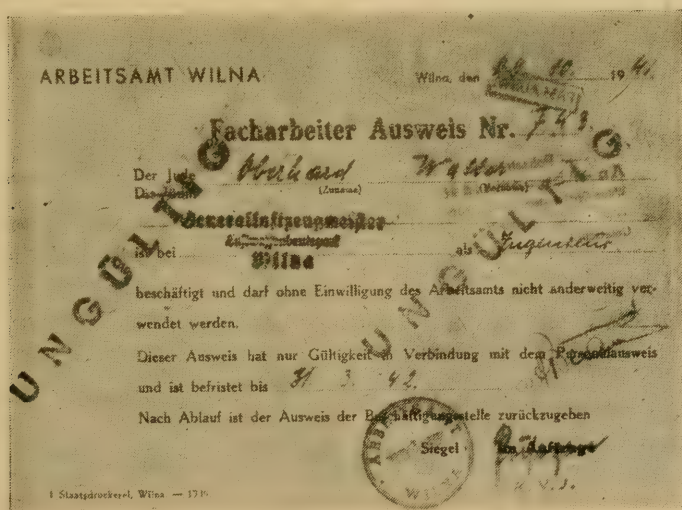 ARBEITSAMT WILNA
Wilna, den 10. 19 41
Facharbeiter Ausweis Nr. 743
Der Jude Oberhard Walter
Die Jüdin (Zuname) (Vorname)
Generalluftzeugmeister
Wilna
ist bei als Ingenieur
beschäftigt und darf ohne Einwilligung des Arbeitsamts nicht anderweitig ver-
wendet werden.
Dieser Ausweis hat nur Gültigkeit in Verbindung mit dem Personalausweis
und ist befristet bis 31. 3. 42.
Nach Ablauf ist der Ausweis der Beschäftigungsstelle zurückzugeben
Siegel Im Auftrage
ARBEITSAMT WILNA
UNGÜLTIG
UNGÜLTIG
1 Staatsdruckerei, Wilna —